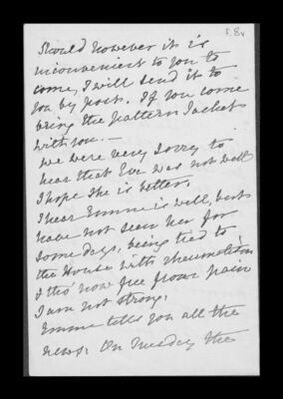 f. 8v
Should however it is
inconvenient to you to
come, I will send it to
you by post. If you come
bring the pattern Jacket
with you. —
we were very sorry to
hear that Eve was not well
I hope she is better,
I hear Emme is well, but
have not seen her for
some days, being tied to
the House with rheumatism
& tho' now free from pain
I am not strong.
Emme tells you all the
news. On Tuesday the